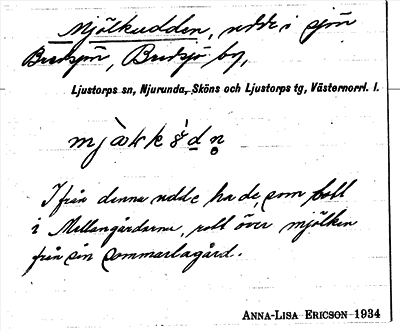 Mjölkudden, udde i sjön
Bredsjön, Bredsjö by,
Ljustorps sn, Njurunda, Sköns och Ljustorps tg, Västernorrl. l.
Ifrån denna udde ha de, som bott
i Mellangårdarna, rott över mjölken
från sin sommarlagård.
ANNA-LISA ERICSON 1934